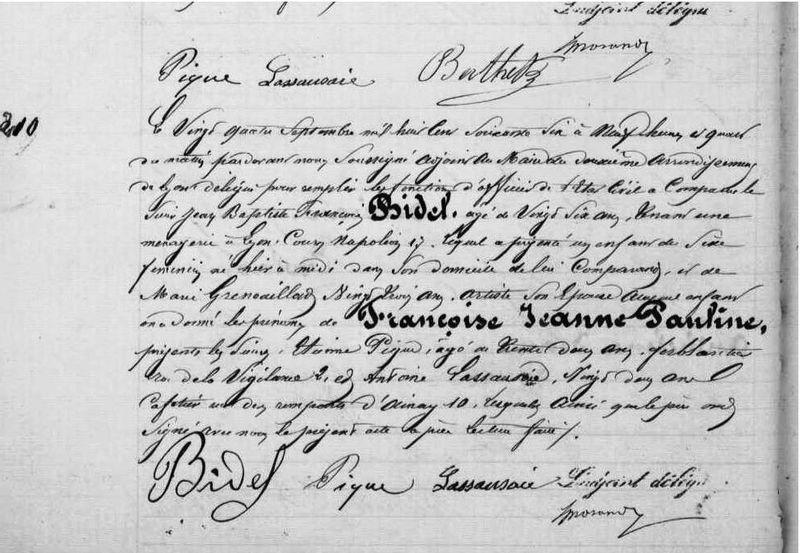 L'adjoint délégué
Morand
Pique Lassausaie Berthet
210
Le Vingt quatre Septembre mil huit cent Soixante Six à Neuf heures et quart
du matin, pardevant nous Soussigné adjoint au Maire du deuxième arrondissement
de Lyon délégué pour remplir les fonctions d'officier de l'Etat Civil a Comparu le
Sieur Jean Baptiste François Bidel, âgé de Vingt Six ans, tenant une
menagerie à Lyon, Cours Napoléon 17, lequel a présenté un enfant de Sexe
féminin né hier à midi dans Son domicile de lui Comparant, et de
Marie Grenouillard Vingt trois ans, artiste Son Epouse auquel enfant
on a donné les prénoms de Françoise Jeanne Pauline,
présents les Sieurs Etienne Pique, âgé de trente deux ans, ferblantier
rue de la Vigilance 2, et Antoine Lassausaie, Vingt deux ans
Cafetier rue des remparts d'Ainay 10, lesquels ainsi que le père ont
Signé avec nous le présent acte après lecture faite.
Bidel Pique Lassausaie L'adjoint délégué
Morand